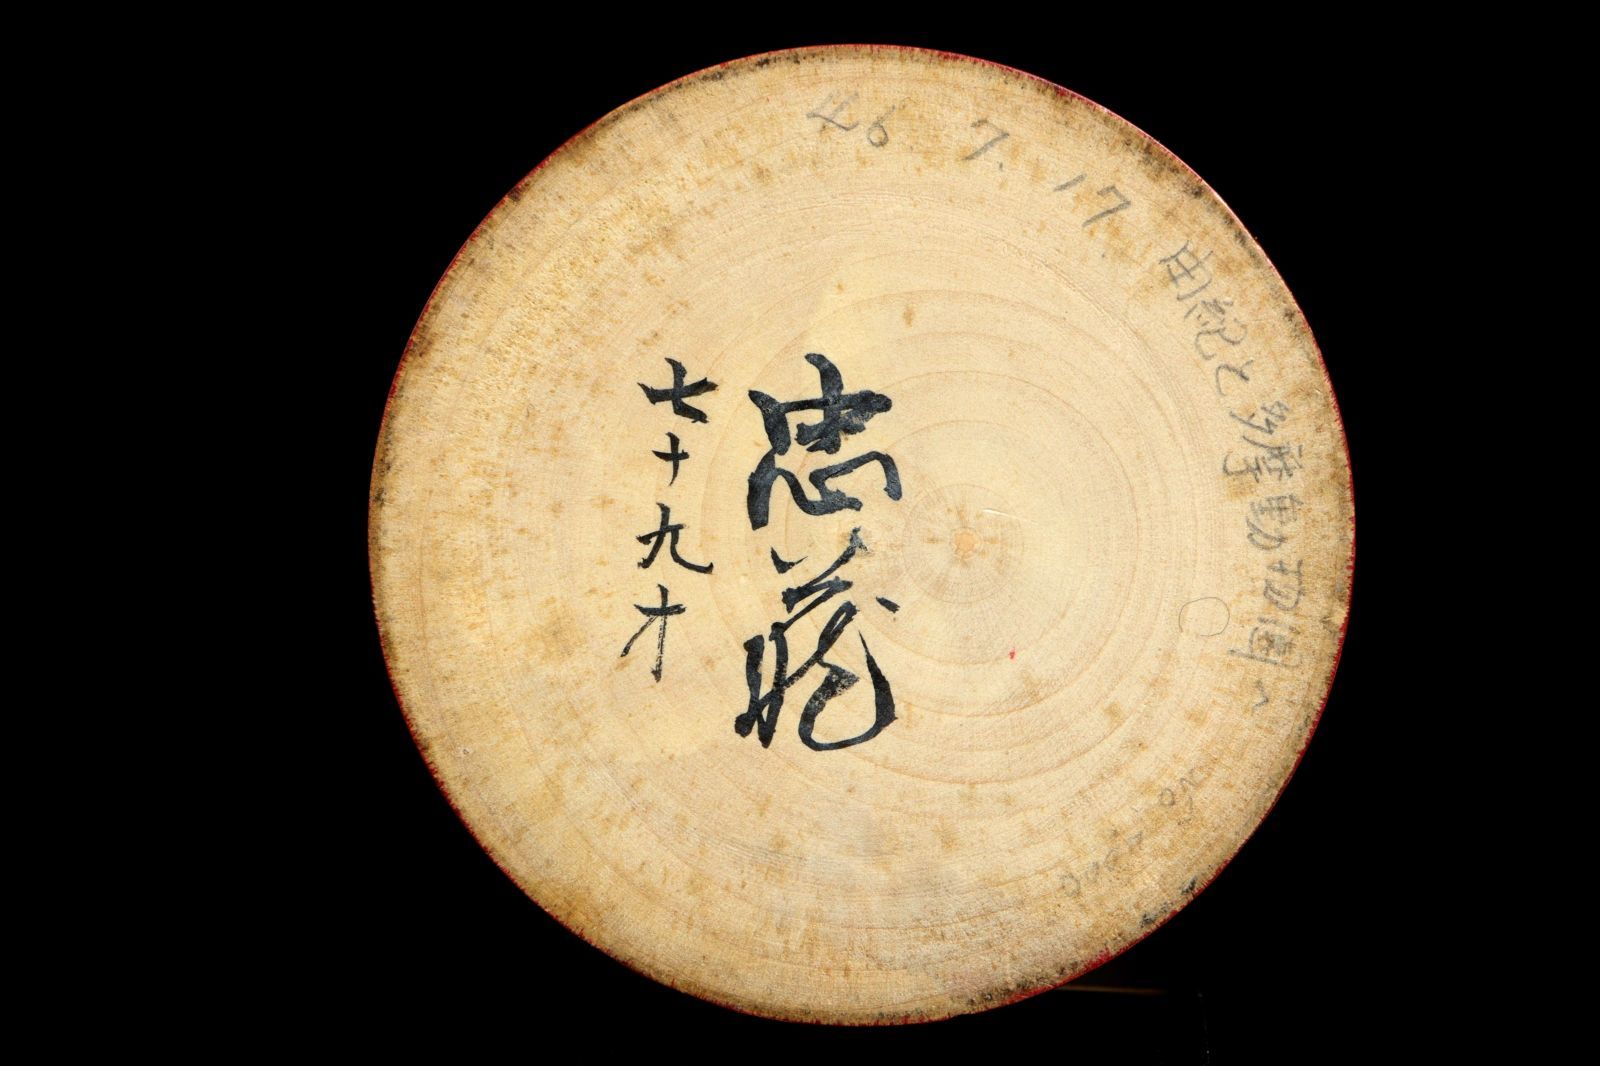 忠蔵
七十九才
46.7.17.由紀と多摩動功園へ